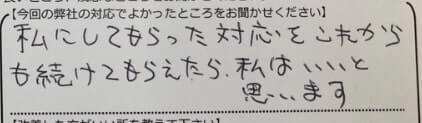 【今回の弊社の対応でよかったところをお聞かせください】
私にしてもらった対応をこれから
も続けてもらえたら、私はいいと
思います